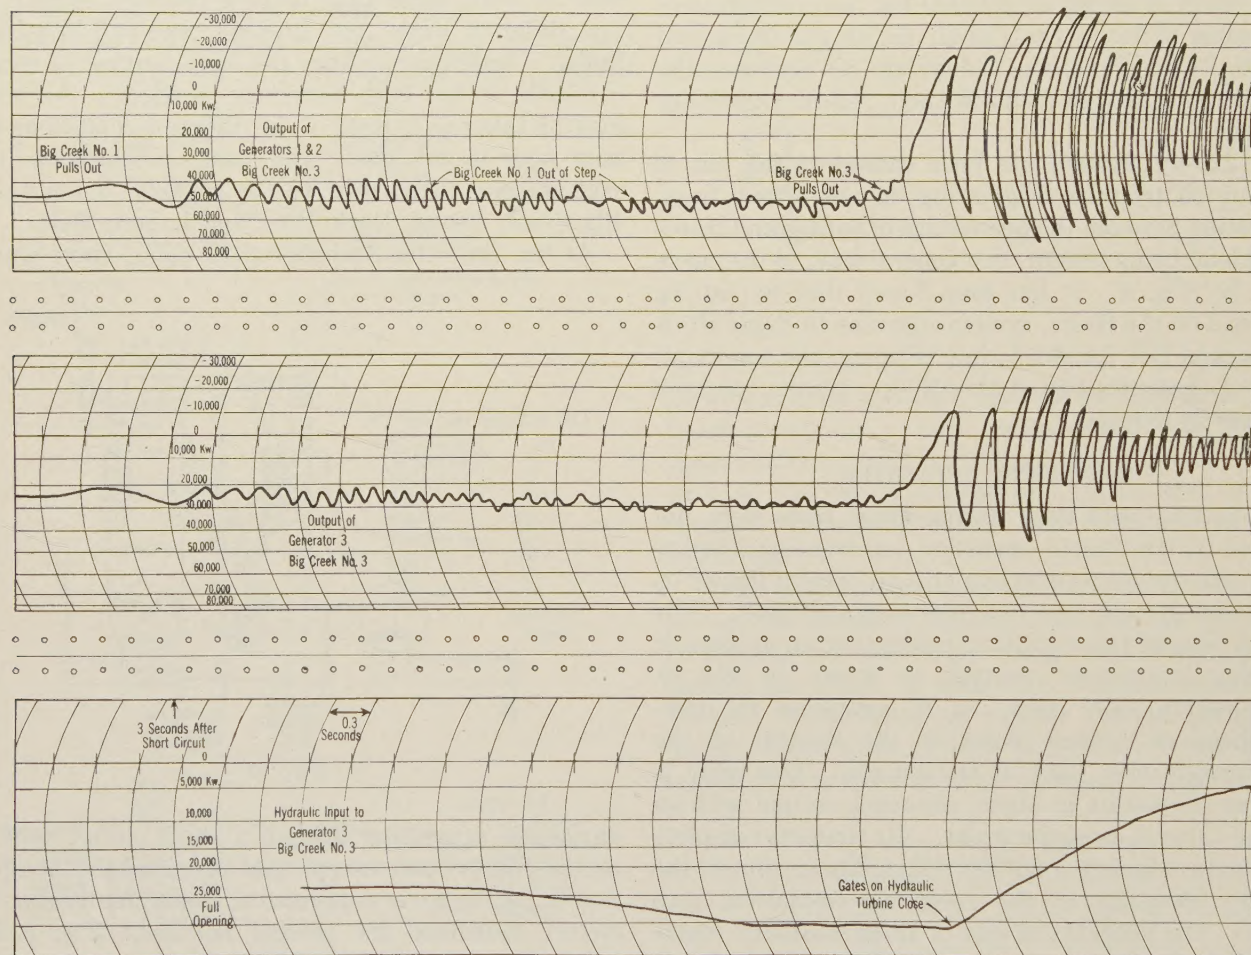 -30,000
-20,000
-10,000
0
10,000 Kw.
20,000
30,000
40,000
50,000
60,000
70,000
80,000
Big Creek No. 1
Pulls Out
Output of
Generators 1 & 2
Big Creek No. 3
Big Creek No 1 Out of Step
Big Creek No.3
Pulls Out
-30,000
-20,000
-10,000
0
10,000 Kw.
20,000
30,000
40,000
50,000
60,000
70,000
80,000
Output of
Generator 3
Big Creek No. 3
3 Seconds After
Short Circuit
0.3
Seconds
0
5,000 Kw.
10,000
15,000
20,000
25,000
Full
Opening
Hydraulic Input to
Generator 3
Big Creek No. 3
Gates on Hydraulic
Turbine Close